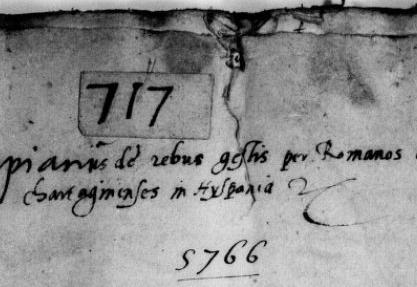 717
pianus de rebus gestis per Romanos
chartaginenses in Hyspania
5766